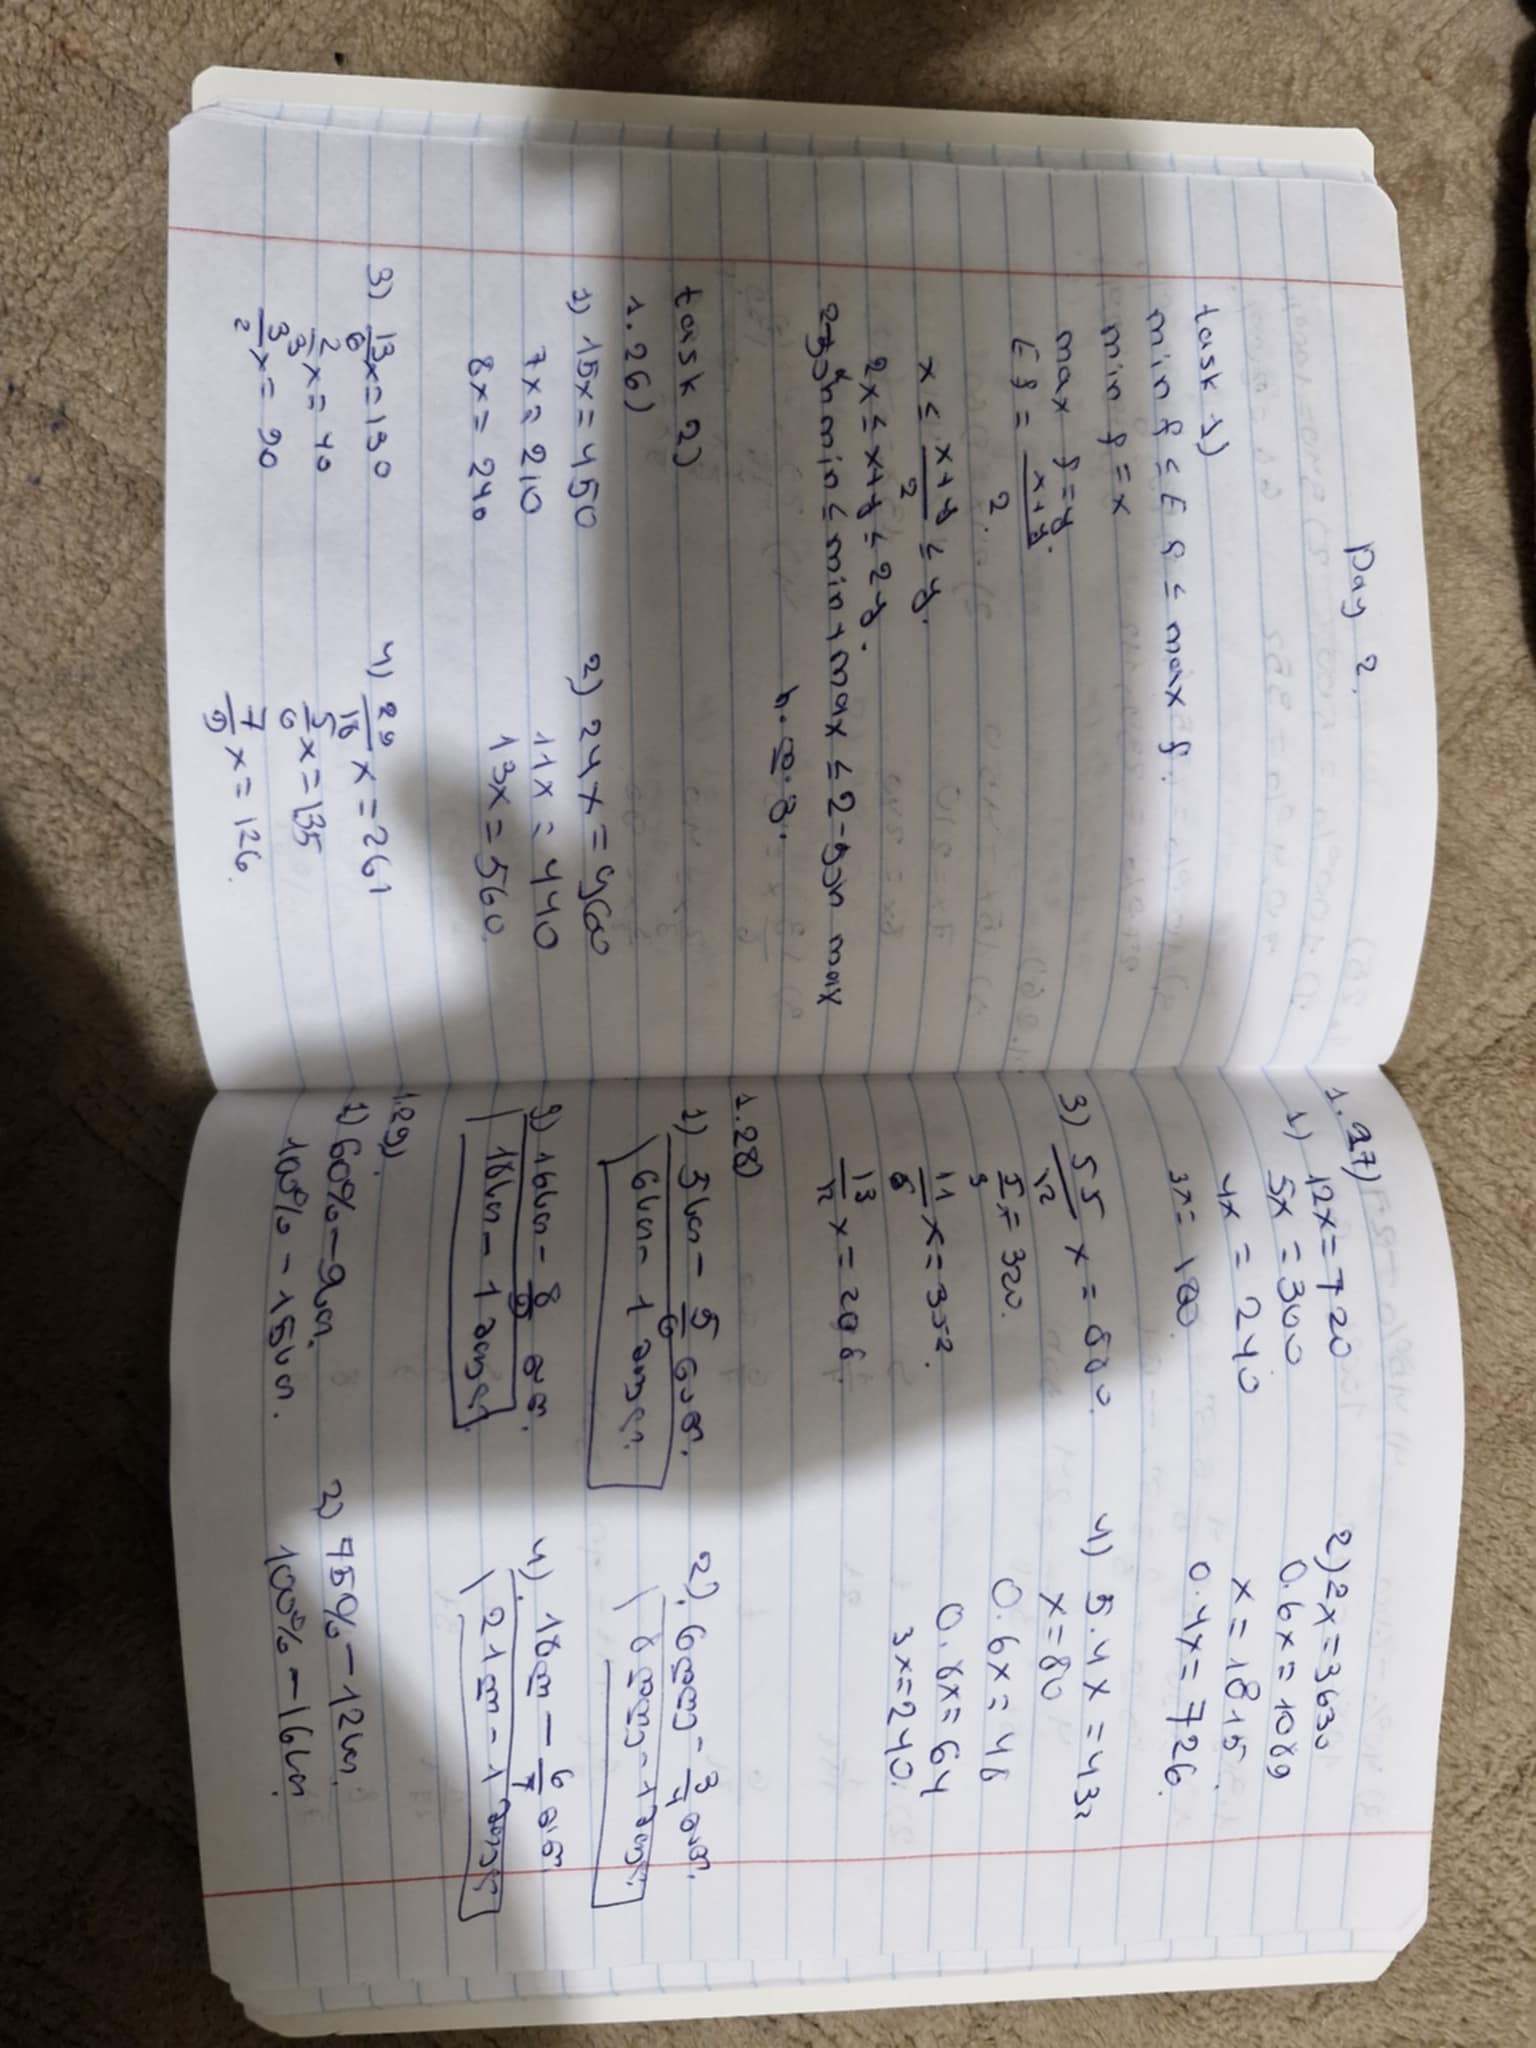 Day 2.
task 1)
min f ≤ E f ≤ max f.
min f = x
max f = y.
E f = x+y/2.
x ≤ x+y/2 ≤ y.
2x ≤ x+y ≤ 2y.
min ≤ min + max ≤ 2-ჯერ max
რ.დ.გ.
task 2)
1.26)
1) 15x = 450
7x = 210
8x = 240
2) 24x = 960
11x = 440
13x = 560.
3) 13/6 x = 130
2/3 x = 40
3/2 x = 90
4) 29/18 x = 261
5/6 x = 135
7/9 x = 126.
1.27)
1) 12x = 720
5x = 300
4x = 240
3x = 180.
2) 2x = 3630
0.6x = 1089
x = 1815.
0.4x = 726.
3) 55/12 x = 880.
5/3 x = 320.
11/6 x = 352.
13/12 x = 208.
4) 5.4x = 432
x = 80
0.6x = 48
0.8x = 64
3x = 240.
1.28)
1) 5სთ – 5/6 ნაწ.
6სთ – 1 მთელ.
2) 6დღე – 3/4 ნაწ.
8დღე – 1 მთელ.
3) 16სთ – 8/9 ნაწ.
18სთ – 1 მთელ.
4) 18დღ – 6/7 ნაწ.
21დღ – 1 მთელ
1.29)
1) 60% – 9სთ.
100% – 15სთ.
2) 75% – 12სთ.
100% – 16სთ.